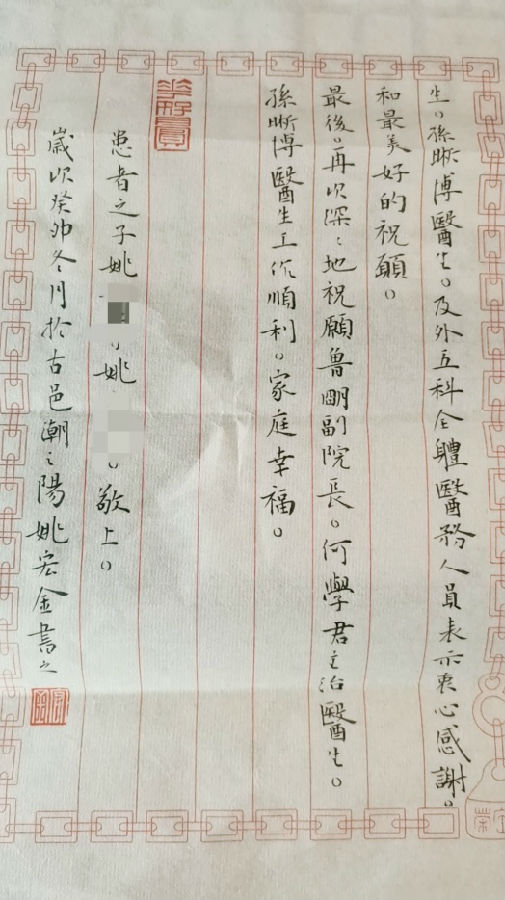 生。孫晰博醫生。及外五科全體醫務人員表示衷心感謝。
和最美好的祝願。
最後。再次深々地祝願魯明副院長。何學君主治醫生。
孫晰博醫生工作順利。家庭幸福。
患者之子姚 姚 。敬上。
歲次癸卯冬月於古邑潮之陽姚宏金書之